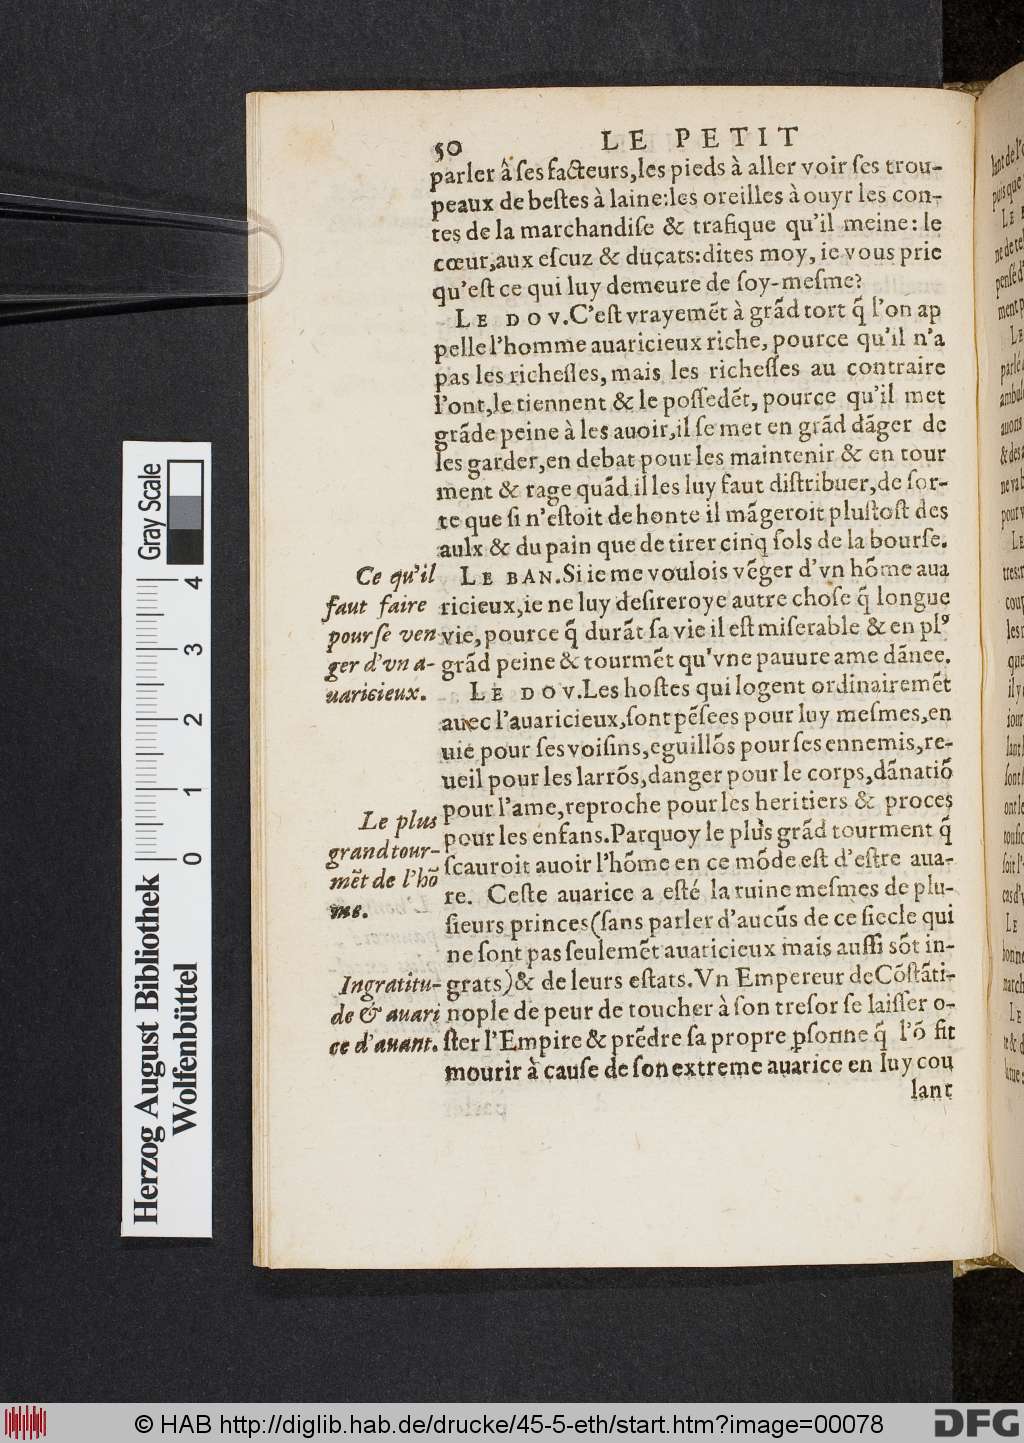 50 LE PETIT
parler â ſes facteurs,les pieds à aller voir ſes trou-
peaux de beſtes à laine:les oreilles à ouyr les con-
tes de la marchandiſe & trafique qu'il meine: le
cœur,aux eſcuz & ducats:dites moy, ie vous prie
qu'eſt ce qui luy demeure de ſoy-meſme?
LE DOV.C'eſt vrayemẽt à grãd tort q̃ l'on ap
pelle l'homme auaricieux riche, pource qu'il n'a
pas les richeſſes, mais les richeſſes au contraire
l'ont,le tiennent & le poſſedẽt, pource qu'il met
grãde peine à les auoir,il ſe met en grãd dãger de
les garder,en debat pour les maintenir & en tour
ment & rage quãd il les luy faut diſtribuer,de ſor-
te que ſi n'eſtoit de honte il mãgeroit pluſtoſt des
aulx & du pain que de tirer cinq ſols de la bourſe.
Ce qu'il
faut faire
pour ſe ven
ger d'vn a-
uaricieux.
LE BAN.Si ie me voulois vẽger d'vn hõme aua
ricieux,ie ne luy deſireroye autre choſe q̃ longue
vie, pource q̃ durãt ſa vie il eſt miſerable & en plꝰ
grãd peine & tourmẽt qu'vne pauure ame dãnee.
LE DOV.Les hoſtes qui logent ordinairemẽt
auec l'auaricieux,ſont pẽſees pour luy meſmes,en
uie pour ſes voiſins,eguillõs pour ſes ennemis,re-
ueil pour les larrõs,danger pour le corps,dãnatiõ
pour l'ame,reproche pour les heritiers & proces
pour les enfans.Parquoy le plus grãd tourment q̃
ſcauroit auoir l'hõme en ce mõde eſt d'eſtre aua-
re. Ceſte auarice a eſté la ruine meſmes de plu-
ſieurs princes(ſans parler d'aucũs de ce ſiecle qui
ne ſont pas ſeulemẽt auaricieux mais auſſi sõt in-
grats)& de leurs eſtats.Vn Empereur de Cõſtãti-
nople de peur de toucher à ſon treſor ſe laiſſer o-
ſter l'Empire & prẽdre ſa propre ꝑſonne q̃ l'õ fit
mourir à cauſe de ſon extreme auarice en luy cou
lant
Le plus
grand tour-
mẽt de l'hõ
me.
Ingratitu-
de & auari
ce d'auant.
Gray Scale
0 1 2 3 4
Herzog August Bibliothek
Wolfenbüttel
© HAB http://diglib.hab.de/drucke/45-5-eth/start.htm?image=00078
DFG